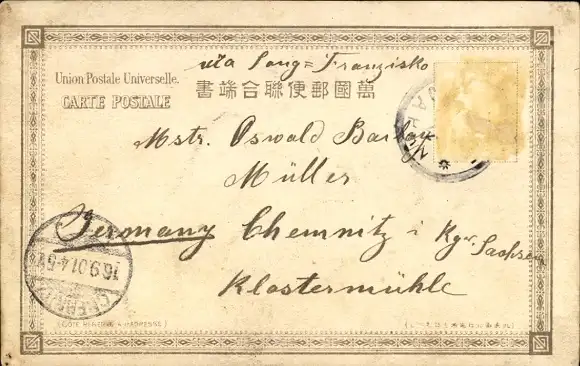 via San Franzisko
Union Postale Universelle.
萬國郵便聯合端書
CARTE POSTALE
Mstr. Oswald
Müller
Germany Chemnitz i Kgr. Sachsen
Klostermühle
16.9.01.4-5
CHEMNITZ
(CÔTÉ RÉSERVÉ À L'ADRESSE)